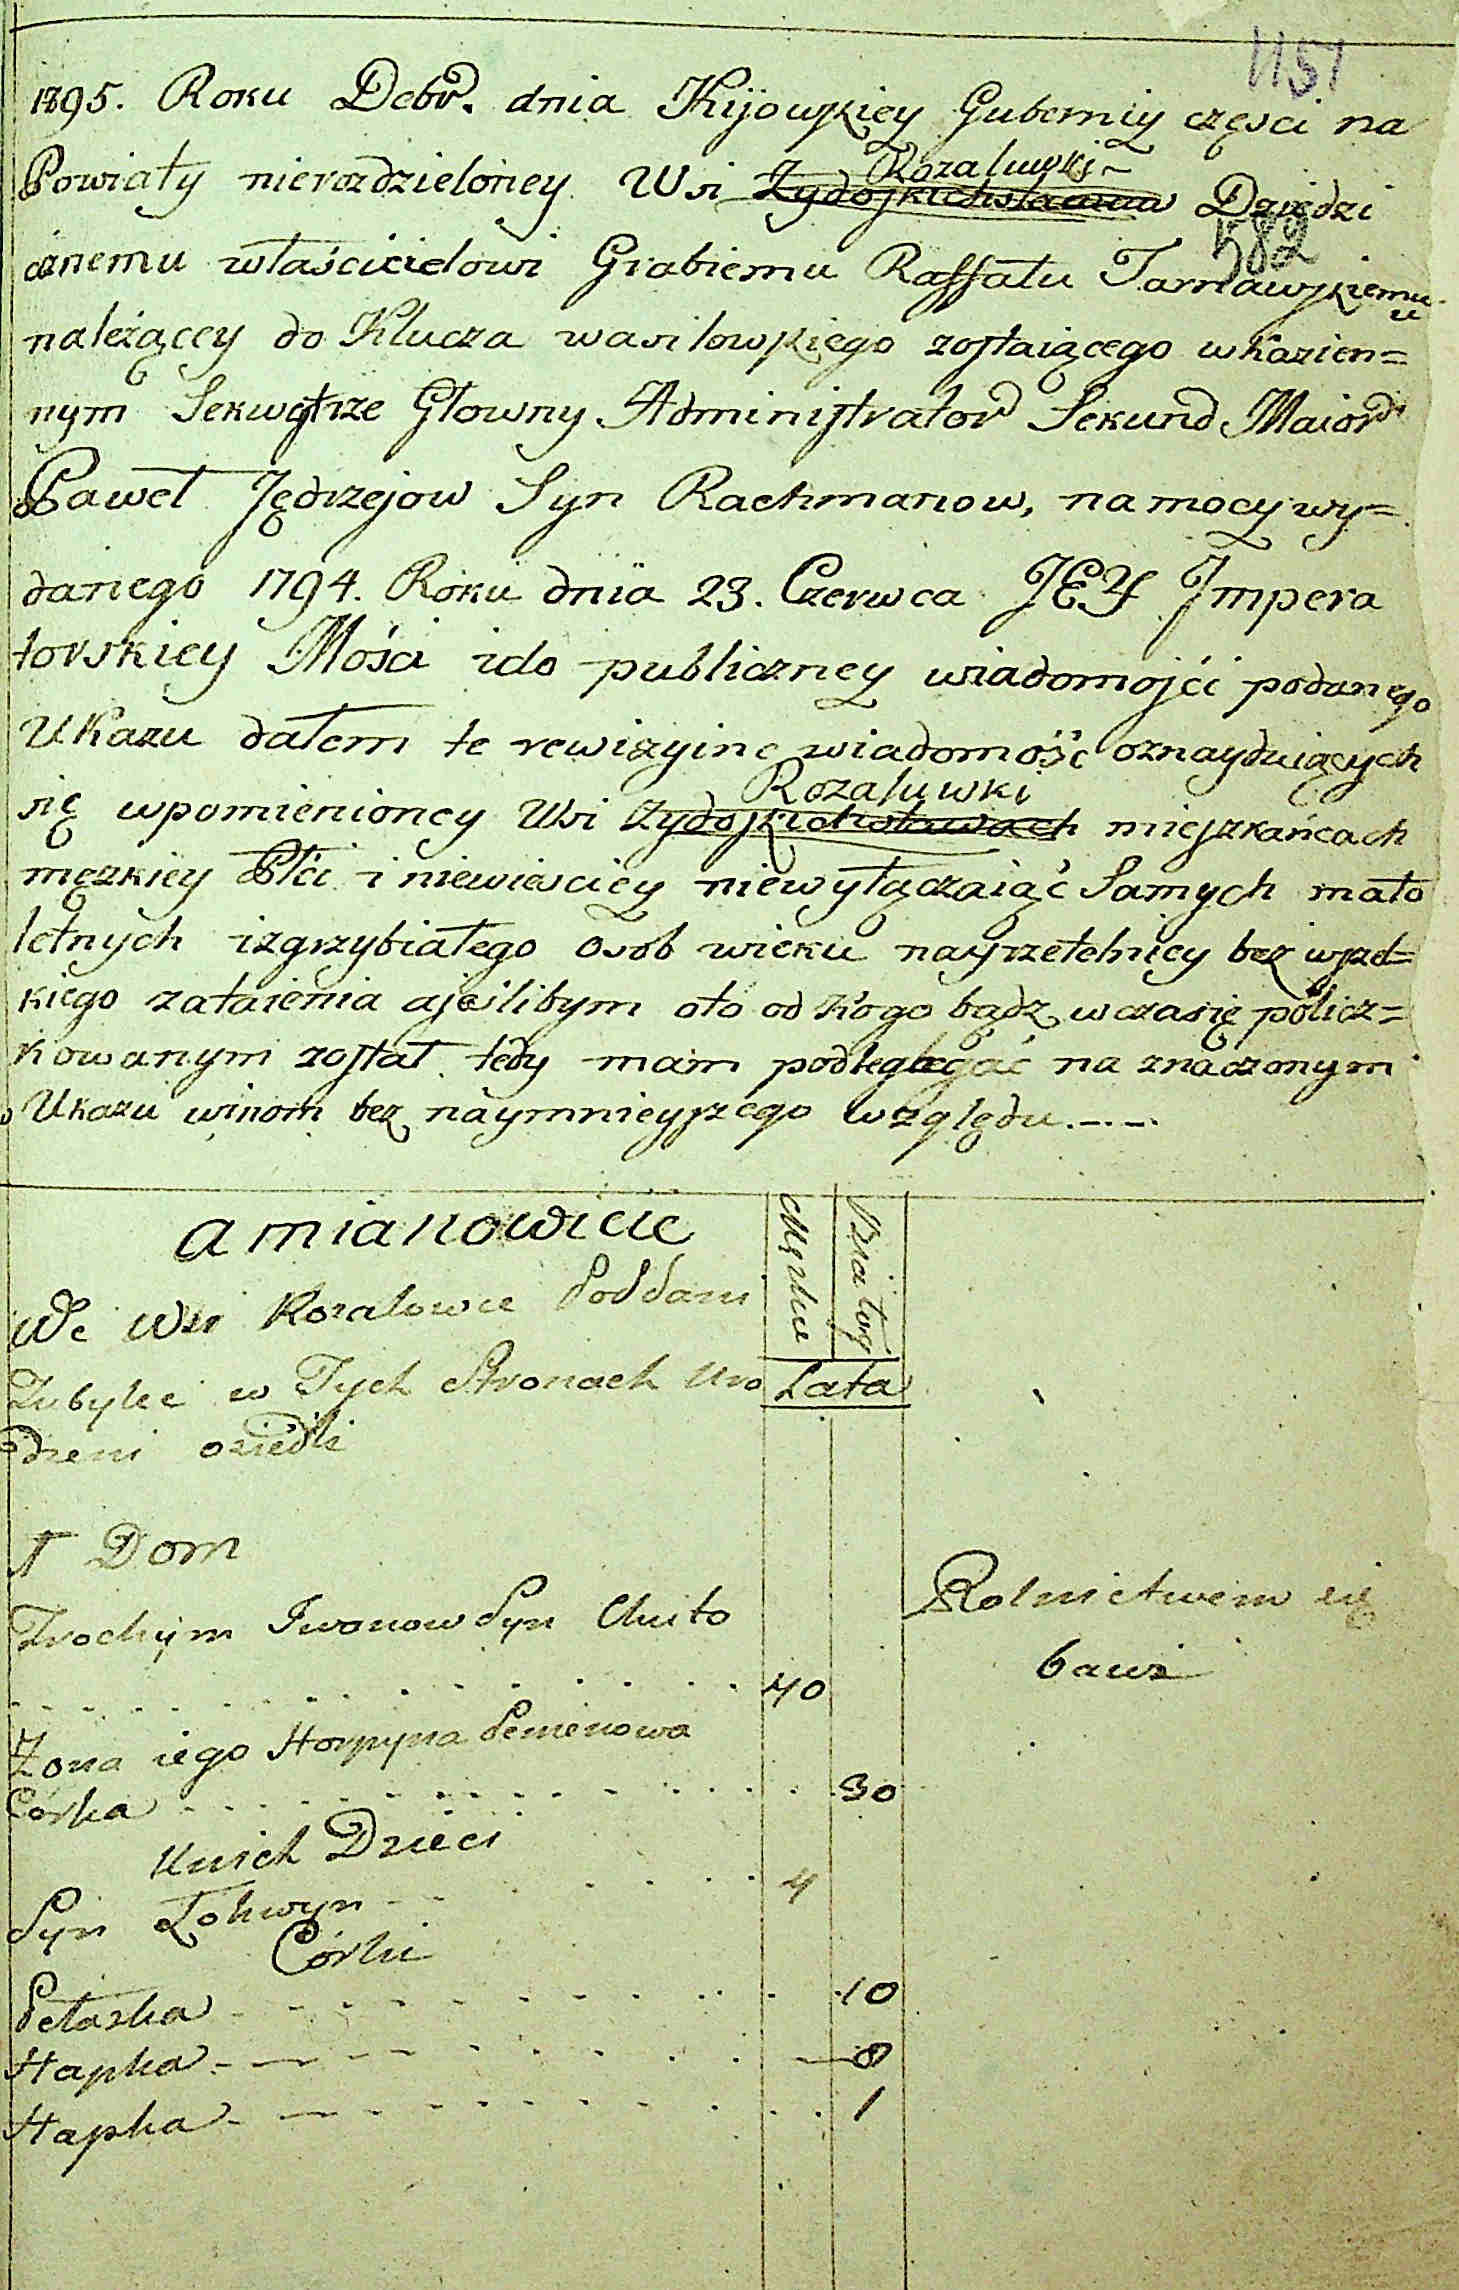 1151
1795. Roku Debr. dnia Kijowskiey Guberniy części na
Powiały nierozdzieloney Wsi Żydoskichstawow Rozaluwki Dziedzi
582
cznemu właścicielowi Grabiemu Raffału Tarnawskiemu
należącey do Klucza wasilowskiego zostaiącego w kazien=
nym Sekwestrze Głowny Administrator Sekund Maior
Paweł Jędrzejow Syn Rachmanow, na mocy wy=
danego 1794. Roku dnia 23. Czerwca JEY Impera
torskiey Mości i do publiczney wiadomości podanego
Ukazu dałem te rewizyine wiadomość oznayduiących
się wpomienioney Wsi Żydoskichstawach Rozaluwki mieszkańcach
męzkiey Płci i niewiesciey niewyłączaiąc Samych mało
letnych izgrzybiałego osob wieku nayrzetelniey bez wszel=
kiego zataienia ajeslibym oto od kogo bądz w czasie policz=
kowanym został tedy mam podlegac na znaczonym
Ukazu winom bez naymnieyszego względu.-.-.
a mianowicie
We Wsi Rozalowce Poddani
Tubylce w Tych Stronach Uro
dzeni osiedli
Męzka
Białog
Lata
1 Dom
Trochym Iwonow Syn
40
Rolnictwem się
bawi
Zona iego Horpyna Semenowa
Córka 30
U nich Dzieci
Syn Łohwyn 4
Córki
Pełaska 10
Hapka 8
Hapka 1